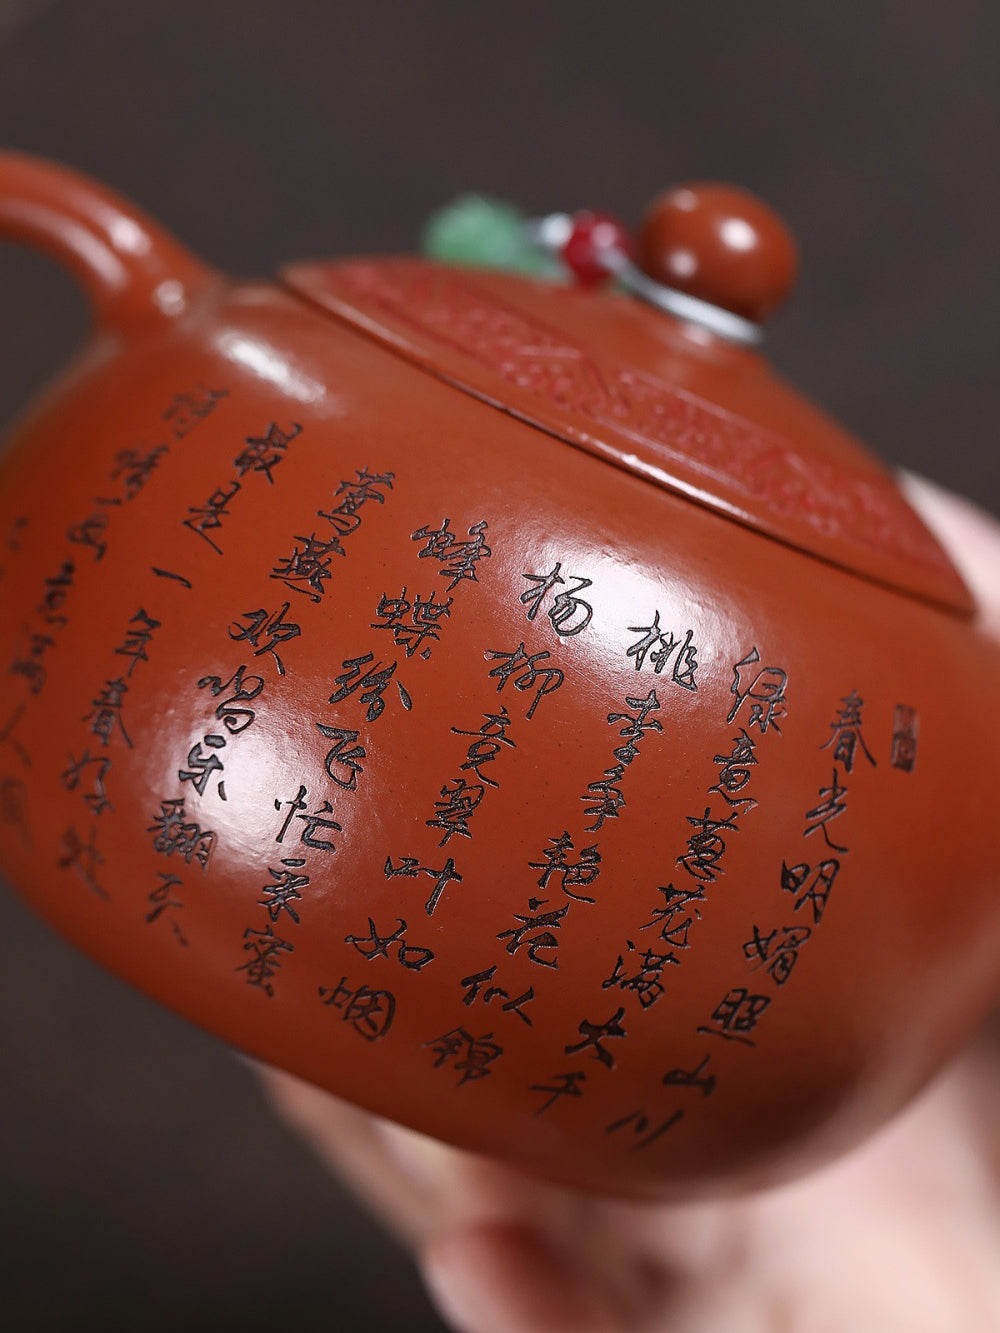 春光明媚照山川
绿意葱茏满大千
桃李争艳花似锦
杨柳竞翠叶如烟
蜂蝶纷飞忙采蜜
莺燕欢唱乐翻天
最是一年春好处